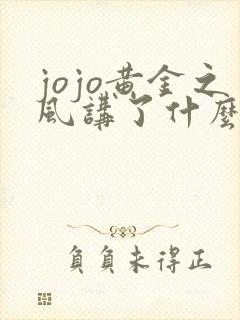 jojo黄金之
风講了什麼
負負未得正